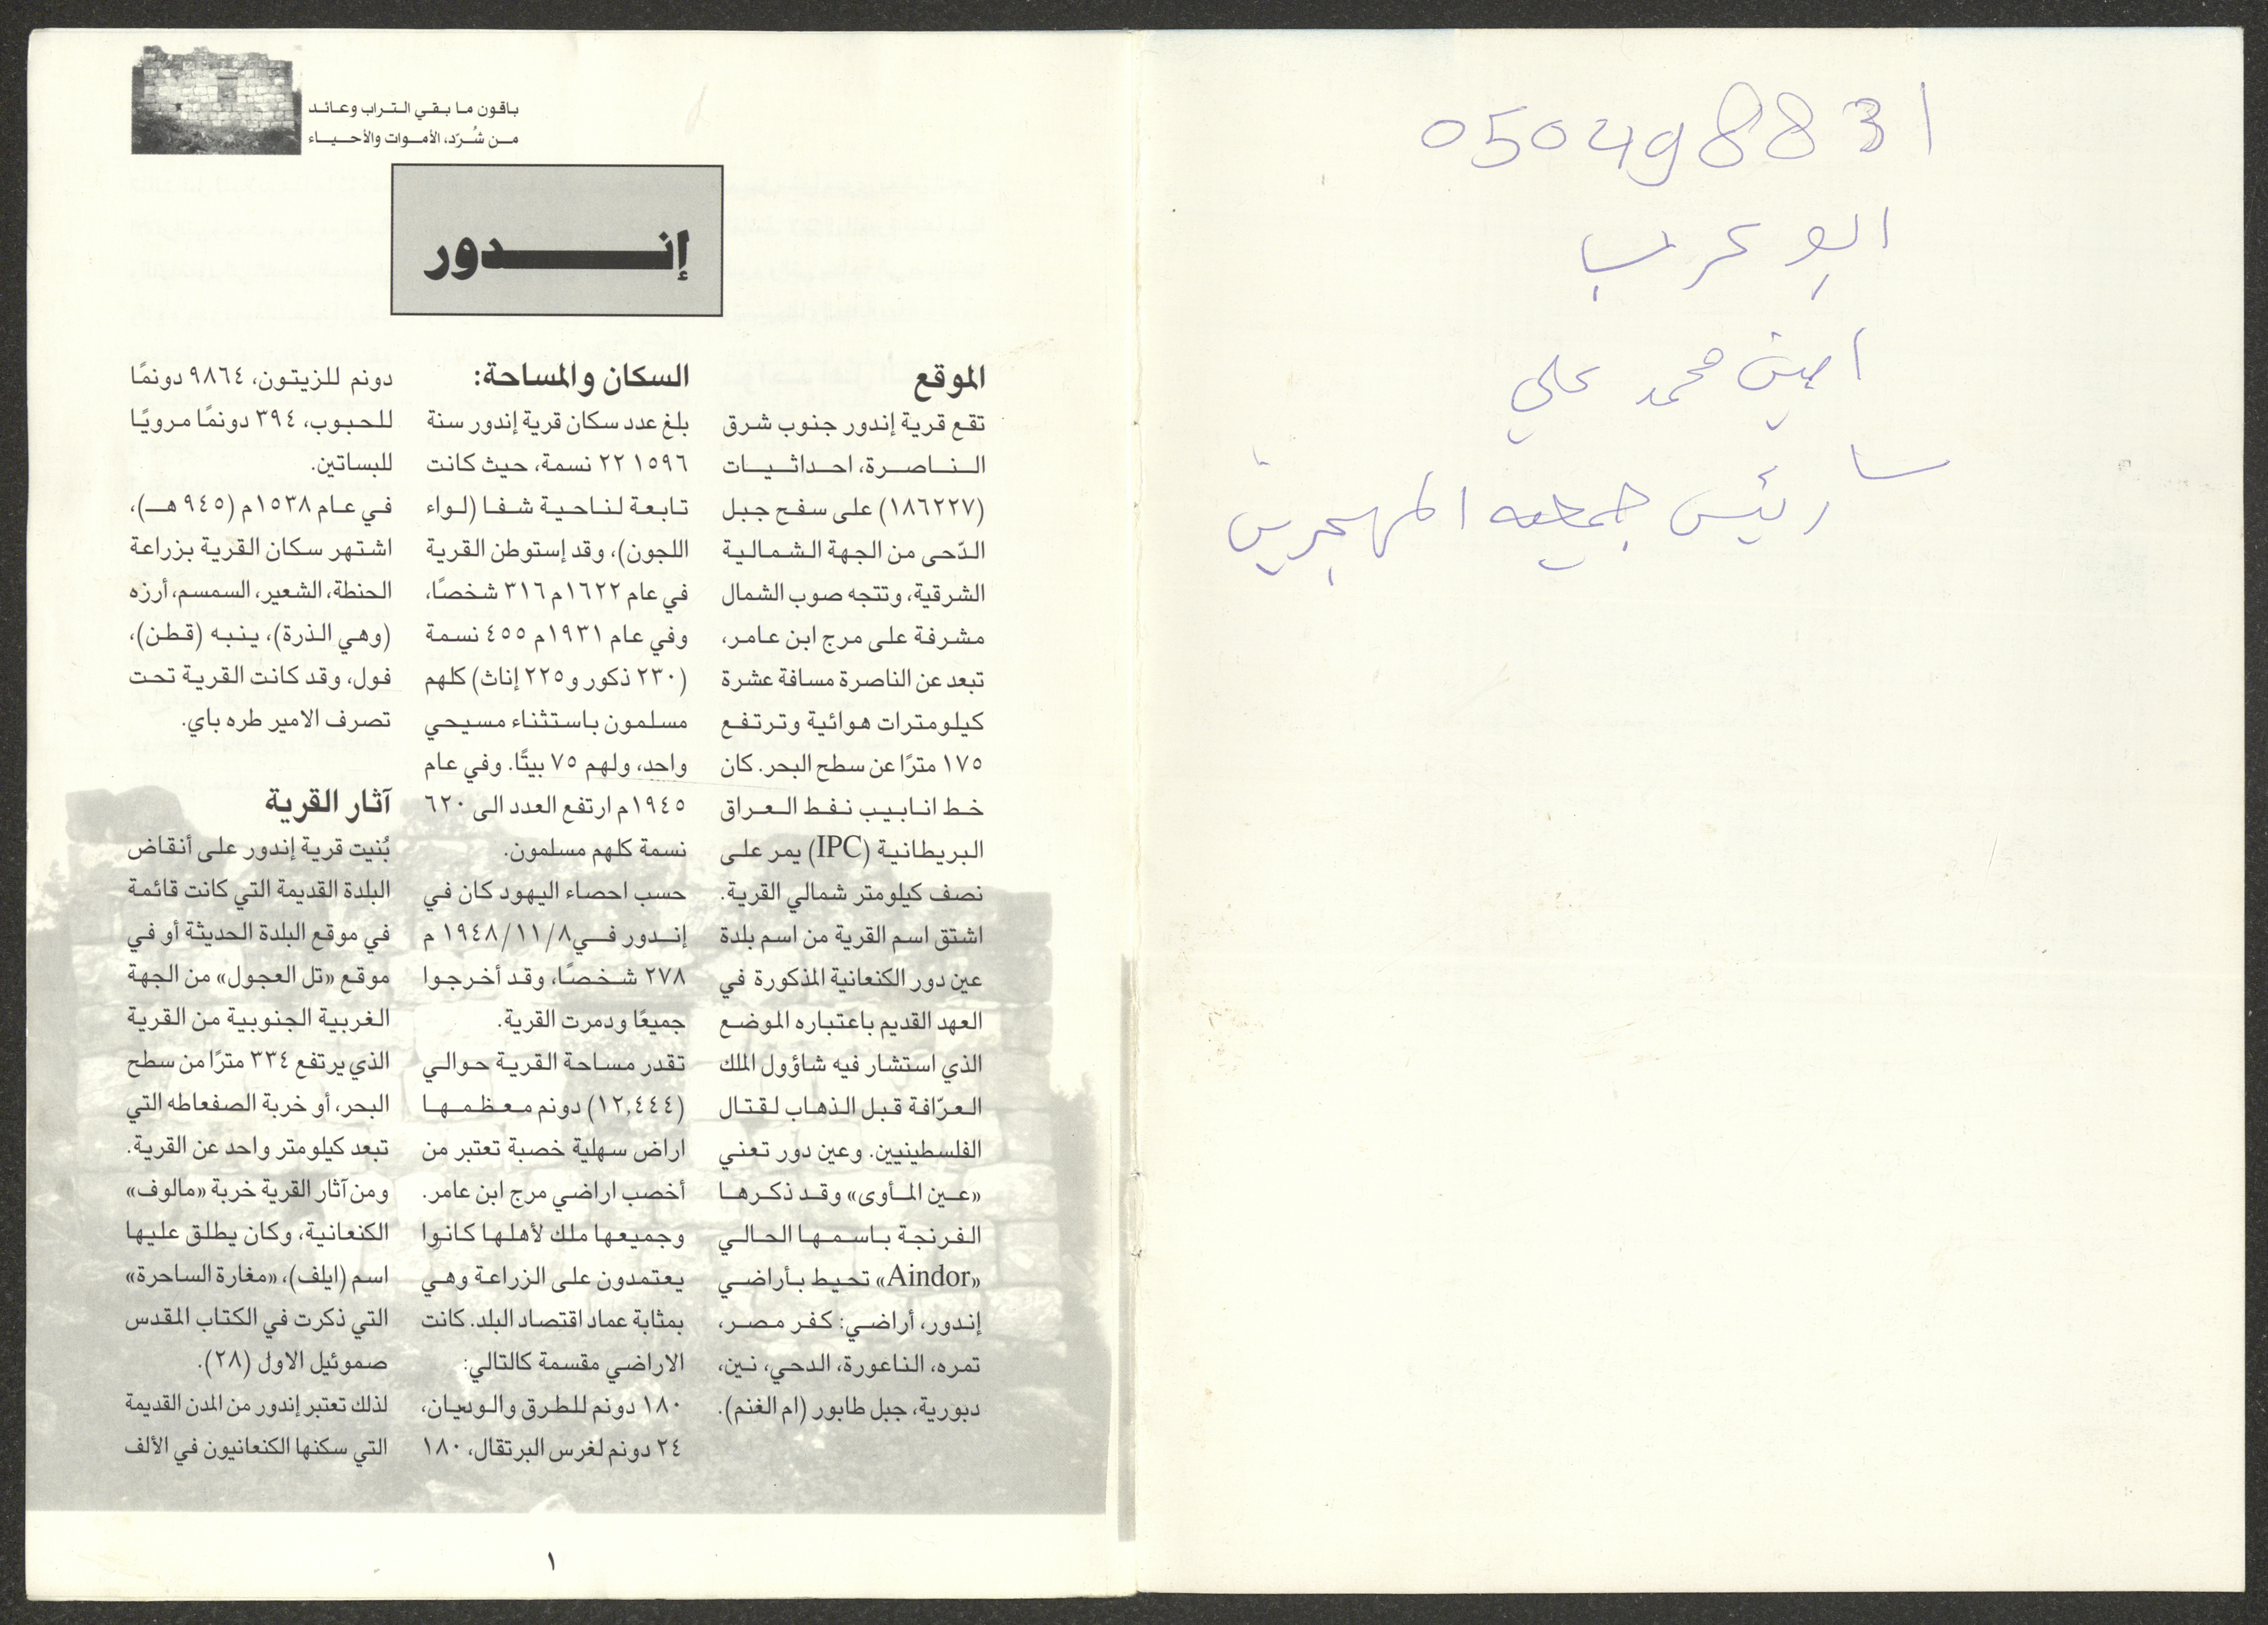 050498831
ابو عرب
امين محمد علي
رئيس جمعيه المهجرين
باقون ما بقي التراب وعائد
من شُرّد، الأموات والأحياء
إندور
الموقع
تقع قرية إندور جنوب شرق
الناصرة، احداثيات
(١٨٦٢٢٧) على سفح جبل
الدّحى من الجهة الشمالية
الشرقية، وتتجه صوب الشمال
مشرفة على مرج ابن عامر،
تبعد عن الناصرة مسافة عشرة
كيلومترات هوائية وترتفع
١٧٥ مترًا عن سطح البحر. كان
خط انابيب نفط العراق
البريطانية (IPC) يمر على
نصف كيلومتر شمالي القرية.
اشتق اسم القرية من اسم بلدة
عين دور الكنعانية المذكورة في
العهد القديم باعتباره الموضع
الذي استشار فيه شاؤول الملك
العرّافة قبل الذهاب لقتال
الفلسطينيين. وعين دور تعني
«عين المأوى» وقد ذكرها
الفرنجة باسمها الحالي
«Aindor» تحيط بأراضي
إندور، أراضي: كفر مصر،
تمره، الناعورة، الدحي، نين،
دبورية، جبل طابور (ام الغنم).
السكان والمساحة:
بلغ عدد سكان قرية إندور سنة
١٥٩٦ ٢٢ نسمة، حيث كانت
تابعة لناحية شفا (لواء
اللجون)، وقد إستوطن القرية
في عام ١٦٢٢م ٣١٦ شخصًا،
وفي عام ١٩٣١م ٤٥٥ نسمة
(٢٣٠ ذكور و٢٢٥ إناث) كلهم
مسلمون باستثناء مسيحي
واحد، ولهم ٧٥ بيتًا. وفي عام
١٩٤٥م ارتفع العدد الى ٦٢٠
نسمة كلهم مسلمون.
حسب احصاء اليهود كان في
إندور في٨/١١/١٩٤٨ م
٢٧٨ شخصًا، وقد أخرجوا
جميعًا ودمرت القرية.
تقدر مساحة القرية حوالي
(١٢,٤٤٤) دونم معظمها
اراض سهلية خصبة تعتبر من
أخصب اراضي مرج ابن عامر.
وجميعها ملك لأهلها كانوا
يعتمدون على الزراعة وهي
بمثابة عماد اقتصاد البلد. كانت
الاراضي مقسمة كالتالي:
١٨٠ دونم للطرق والوديان،
٢٤ دونم لغرس البرتقال، ١٨٠
دونم للزيتون، ٩٨٦٤ دونمًا
للحبوب، ٣٩٤ دونمًا مرويًا
للبساتين.
في عام ١٥٣٨م (٩٤٥هـ)،
اشتهر سكان القرية بزراعة
الحنطة، الشعير، السمسم، أرزه
(وهي الذرة)، ينبه (قطن)،
فول، وقد كانت القرية تحت
تصرف الامير طره باي.
آثار القرية
بُنيت قرية إندور على أنقاض
البلدة القديمة التي كانت قائمة
في موقع البلدة الحديثة أو في
موقع «تل العجول» من الجهة
الغربية الجنوبية من القرية
الذي يرتفع ٣٣٤ مترًا من سطح
البحر، أو خربة الصفعاطه التي
تبعد كيلومتر واحد عن القرية.
ومن آثار القرية خربة «مالوف»
الكنعانية، وكان يطلق عليها
اسم (ايلف)، «مغارة الساحرة»
التي ذكرت في الكتاب المقدس
صموئيل الاول (٢٨).
لذلك تعتبر إندور من المدن القديمة
التي سكنها الكنعانيون في الألف
١